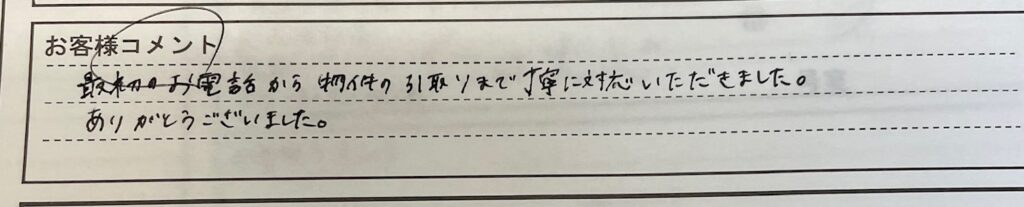 お客様コメント
最初のお電話から物件の引取りまで丁寧に対応いただきました。
ありがとうございました。